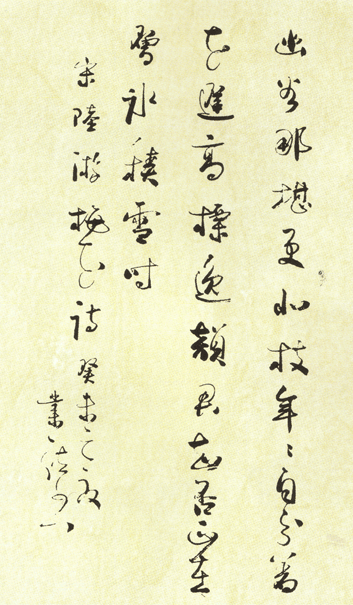 幽谷那堪更北枝年々自分著
花遲高標逸韻君知否正在
層冰積雪時
宋陸游梅花詩 癸未之
業